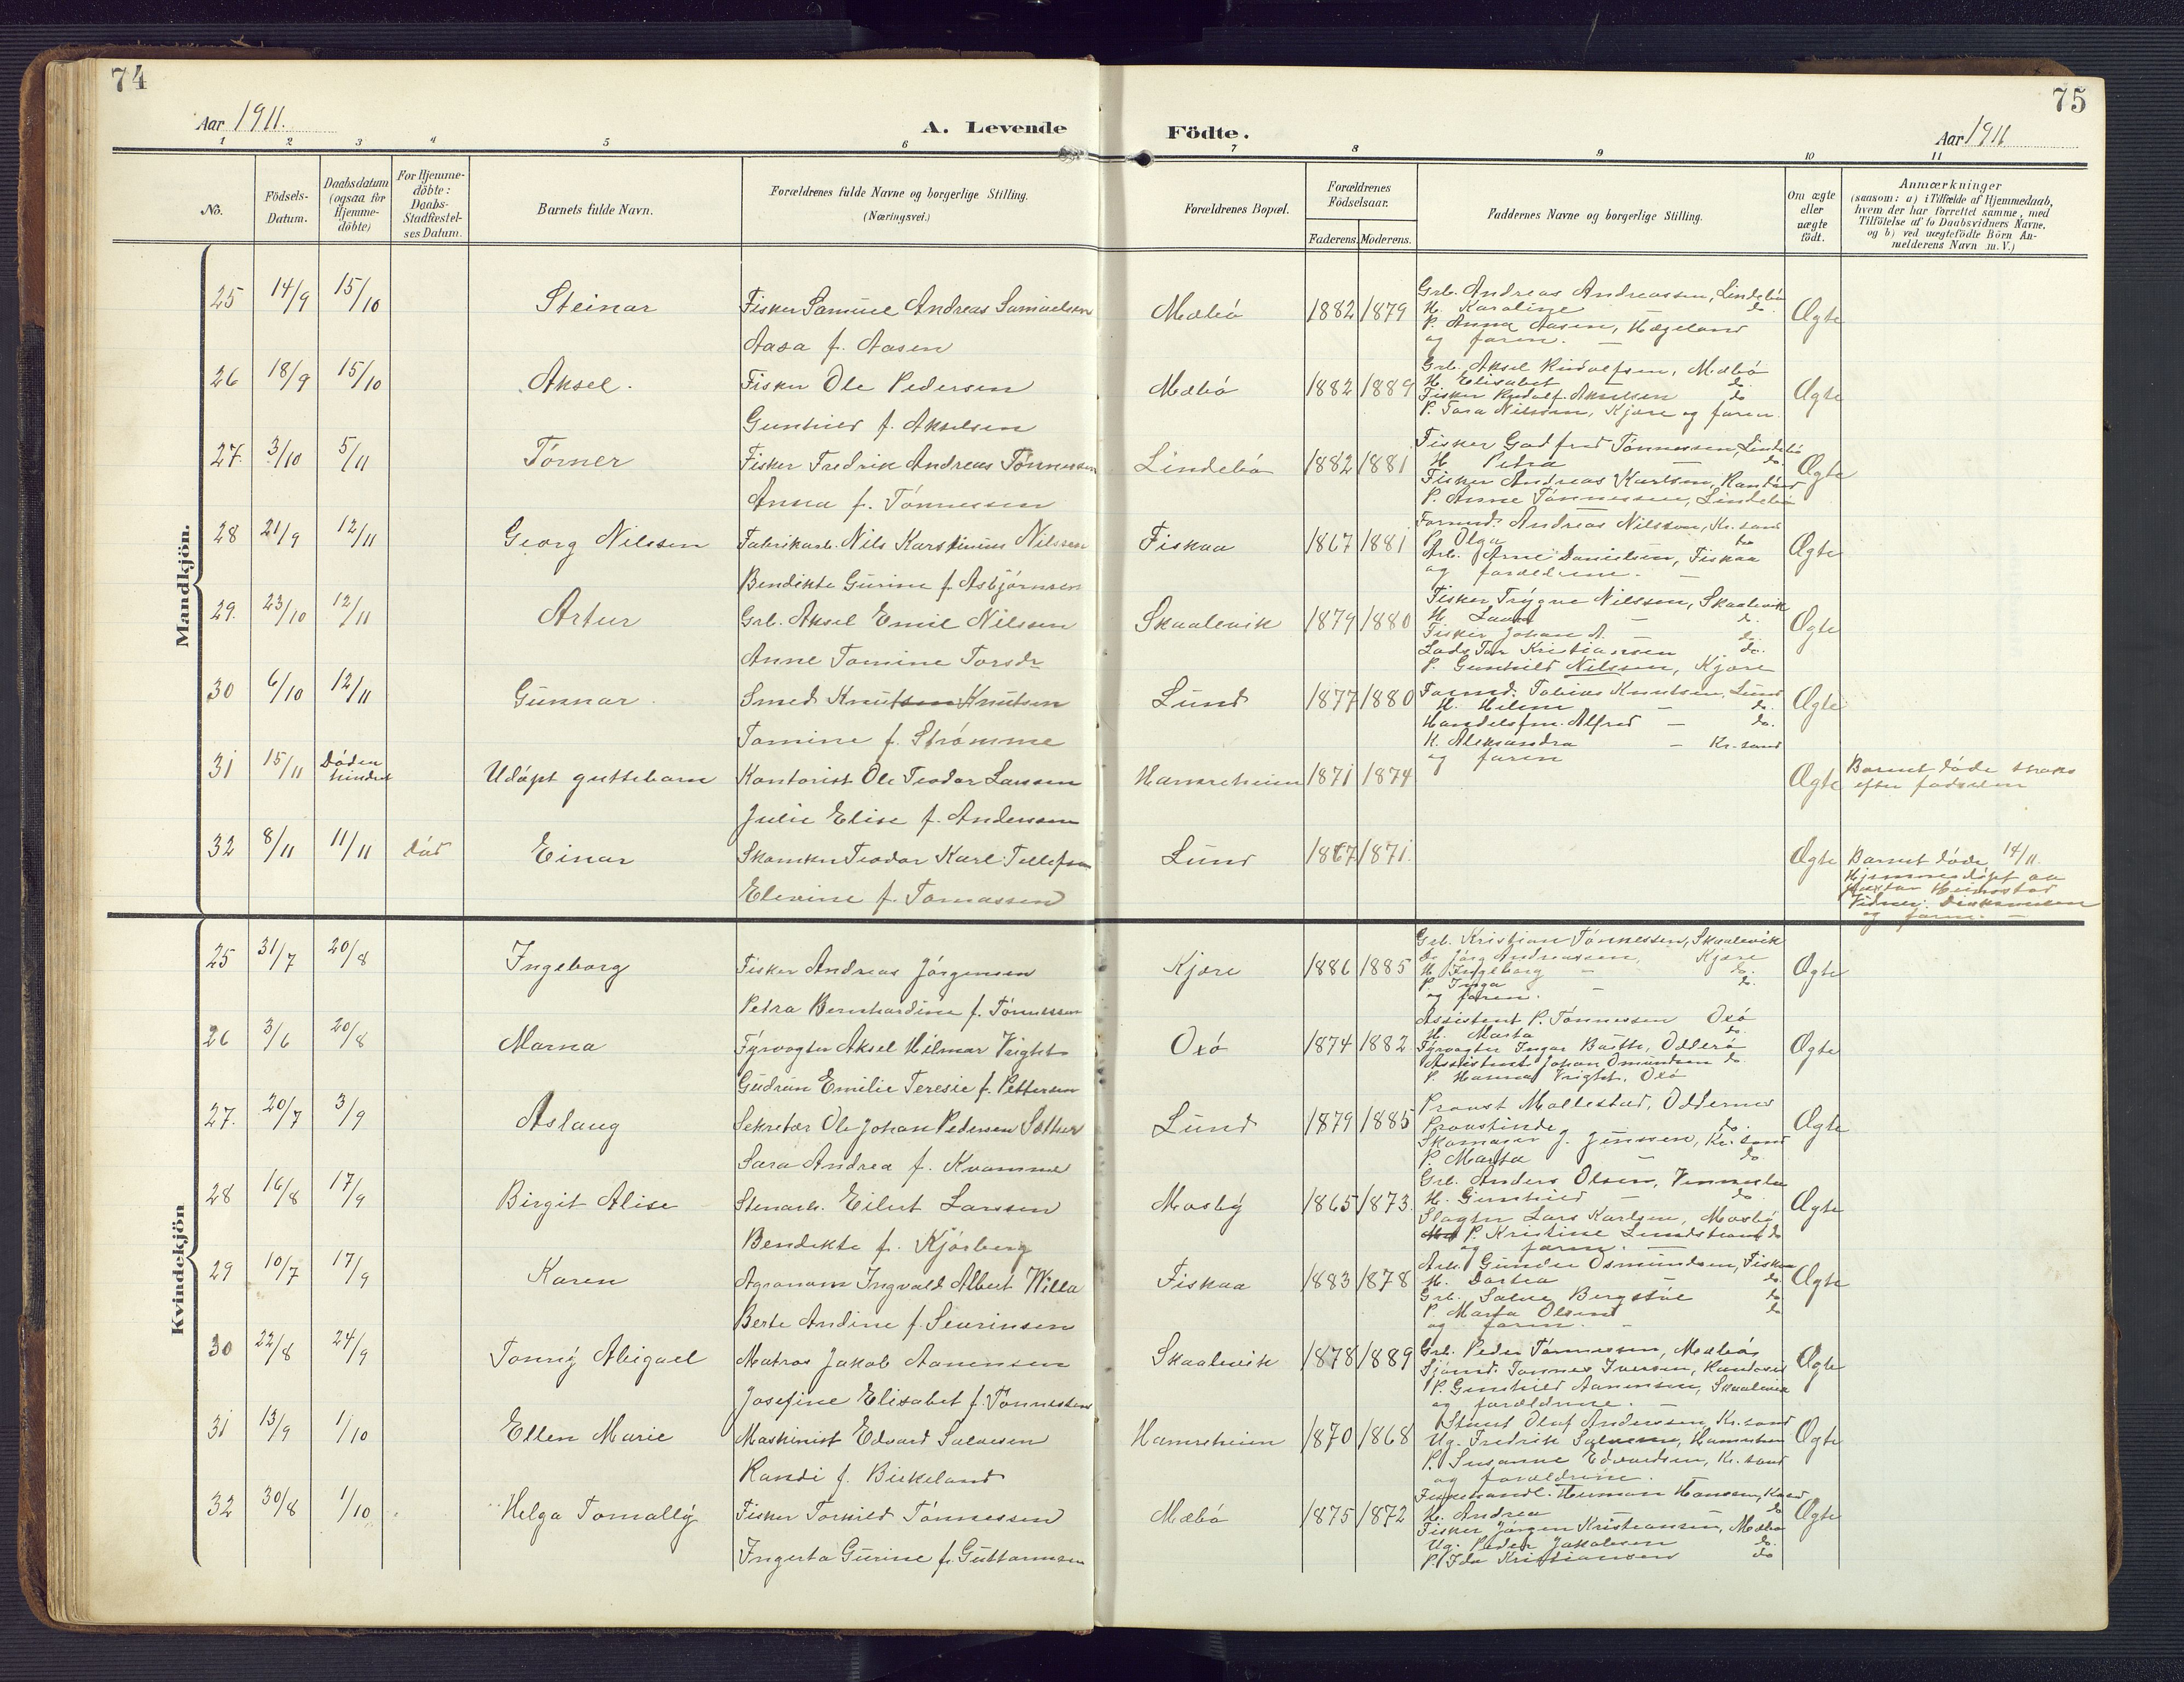 74
Aar 1911.
A. Levende
Födte.
Aar 1911
75
1 2 3 4 5 6 7 8 9 10 11
No.
Födsels-
Datum.
Daabsdatum
(ogsaa for
Hjemme-
döbte)
For Hjemme-
döbte:
Daabs-
Stadfæstel-
ses Datum.
Barnets fulde Navn.
Forældrenes fulde Navne og borgerlige Stilling.
(Næringsvei.)
Forældrenes Bopæl.
Forældrenes
Födselsaar.
Faderens. Moderens.
Faddernes Navne og borgerlige Stilling.
Om ægte
eller
uægte
födt.
Anmærkninger
(saasom: a) i Tilfælde af Hjemmedaab,
hvem der har forrettet samme, med
Tilföielse af to Daabsvidners Navne,
og b) ved uægtefödte Börn An-
melderens Navn m. V.)
Mandkjön.
25 14/9 15/10 Steinar Fisker Samuel Andreas Samuelsen
Aasa f. Aasen
Mæbö 1882 1879
Grb. Andreas Andreassen, Lindebö
H. Karoline — do
P. Anna Aasen, Hægeland
og faren. —
Ægte
26 18/9 15/10 Aksel. Fisker Ole Pedersen
Gunhild f. Akselsen
Mæbö 1882 1889
Grb. Aksel Rudolfsen, Mæbö
H. Elisabet — do
Fisker Rudolf Akselsen do
P. Tora Nilssen, Kjære og faren.
Ægte
27. 3/10 5/11 Törner Fisker Fredrik Andreas Tönnessen
Anna f. Tönnessen
Lindebö 1882 1881
Fisker Godfred Tönnessen, Lindebö
H. Petra — do.
Fisker Andreas Karlsen, Randösd
P. Anne Tönnessen, Lindebö
Ægte
28 21/9 12/11 Georg Nilssen Fabrikarb. Nils Karstinius Nilssen
Bendikte Gurine f. Asbjörnsen
Fiskaa 1867 1881
Formd. Andreas Nilsson, Kr.sand
P. Olga do
Arb. Arne Danielsen, Fiskaa
og forældrene. —
Ægte
29. 23/10 12/11 Artur Grb. Aksel Emil Nilssen
Anne Tomine Torsdr
Skaalevik 1879 1880
Fisker Trygve Nilssen, Skaalevik
H. Laura — do.
Fisker Johan A. — do.
Lods Tor Kristiansen do.
P. Gunhild Nilssen, Kjære
Ægte
30 6/10 12/11 Gunnar. Smed Knutsen Knutsen
Tomine f. Strömme
Lund 1877 1880
Formd. Tobias Knutsen, Lund
H. Helene — do.
Handelsfm. Alfred — do.
H. Aleksandra — Kr. sand
og faren
Ægte
31 15/11 Döden hindret Udöpt guttebarn Kontorist Ole Teodor Larssen
Julie Elise f. Anderssen
Hamreheim 1871 1874
Ægte Barnet döde straks
efter fødselen
32 8/11 11/11 död Einar Skomker Teodor Karl Tellefsen
Elevine f. Tomassen
Lund 1867 1871.
Ægte Barnet döde 14/11.
Hjemmedöpt av
Vidner: Diakonissen
og faren. —
Kvindekjön
25 31/7 20/8 Ingeborg Fisker Andreas Jörgensen
Petra Bernhardine f. Tönnessen
Kjære 1886 1885
Grb. Kristian Tönnessen, Skaalevik
Do Jörg Andreassen, Kjære
H. Ingeborg — do.
P. Inga — do.
og faren.
Ægte
26 3/6 20/8 Marna Fyrvogter Aksel Hilmar Vright
Gudrun Emilie Teresie f. Pettersen
Oxö 1874 1882
Assistent P. Tönnessen Oxö
H. Marta do.
Fyrvogter Ingar Butth, Odderö
Assistent Johan Omundsen do
P. Hanna Vright, Oxö
Ægte
27. 20/7 3/9 Aslaug Sekretær Ole Johan Pedersen Sæther
Sara Andrea f. Kvamme
Lund 1879 1885
Provst Mollestad, Oddernes
Provstinde do.
Skomager J. Jenssen, Kr. sand
P. Marta — do.
Ægte
28 16/8 17/9 Birgit Alise Stenarb. Eilert Larssen
Bendikte f. Kjösberg
Mosby 1865 1873.
Grb. Anders Olsen, Vennesla
H. Gunhild — do
Slagter Lars Karlsen, Mosby
P. Kristine Lundstrand do
og faren. —
Ægte
29 10/7 17/9 Karen Agronom Ingvald Albert Willa
Berte Andine f. Severinsen
Fiskaa 1883 1878
Arb. Gunder Osmundsen, Fiskaa
H. Dortea — do.
Grb. Salve Bergstöl do
P. Marta Olsen do
og faren. —
Ægte
30 22/8 24/9 Tonny Abigael Matros Jakob Aanensen
Josefine Elisabet f. Tönnessen
Skaalevik 1878 1889
Grb. Peder Tönnessen, Mæbö,
Sjömd. Tönnes Iversen, Randösd
P. Gunhild Aanensen, Skaalevik
og forældrene. —
Ægte
31 13/9 1/10 Ellen Marie Maskinist Edvard Salvesen
Randi f. Birkeland
Hamreheim 1870 1868
Stuert Oluf Anderssen, Kr. sand
Ug. Fredrik Salvesen, Hamreheim
P. Susanne Edvardsen, Kr. sand
og forældrene.
Ægte
32 30/8 1/10 Helga Tomally Fisker Torkild Tönnessen
Ingerta Gurine f. Guttormsen
Mæbö 1875 1872
Fiskehandl. Herman Hansen, Krsd
H. Andrea — do
Fisker Jörgen Kristiansen, Mæbö
Ug. Peder Jakobsen do.
P. Ida Kristiansen do
Ægte